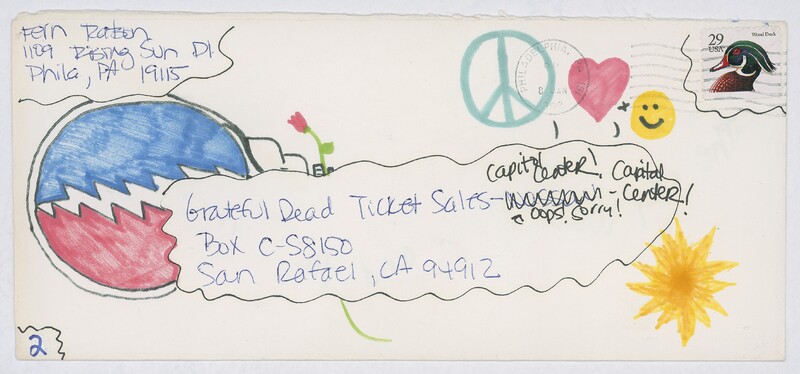 Fern
1189 Rising Sun Pl
Phila, PA 19115
PHILADELPHIA,
29
USA
Wood Duck
Capitol Center! Capital
Grateful Dead Ticket Sales- - Center!
oops! sorry!
Box C-S8150
San Rafael, CA 94912
2